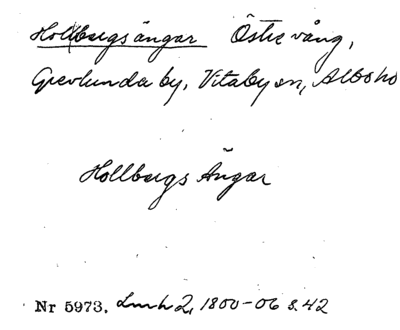 Hollbergs ängar Östre vång,
Grevlunda by, Vitaby sn, Albo hd
Hollbergs Ängar
Nr 5973. Lmh 2, 1800-06 s. 42